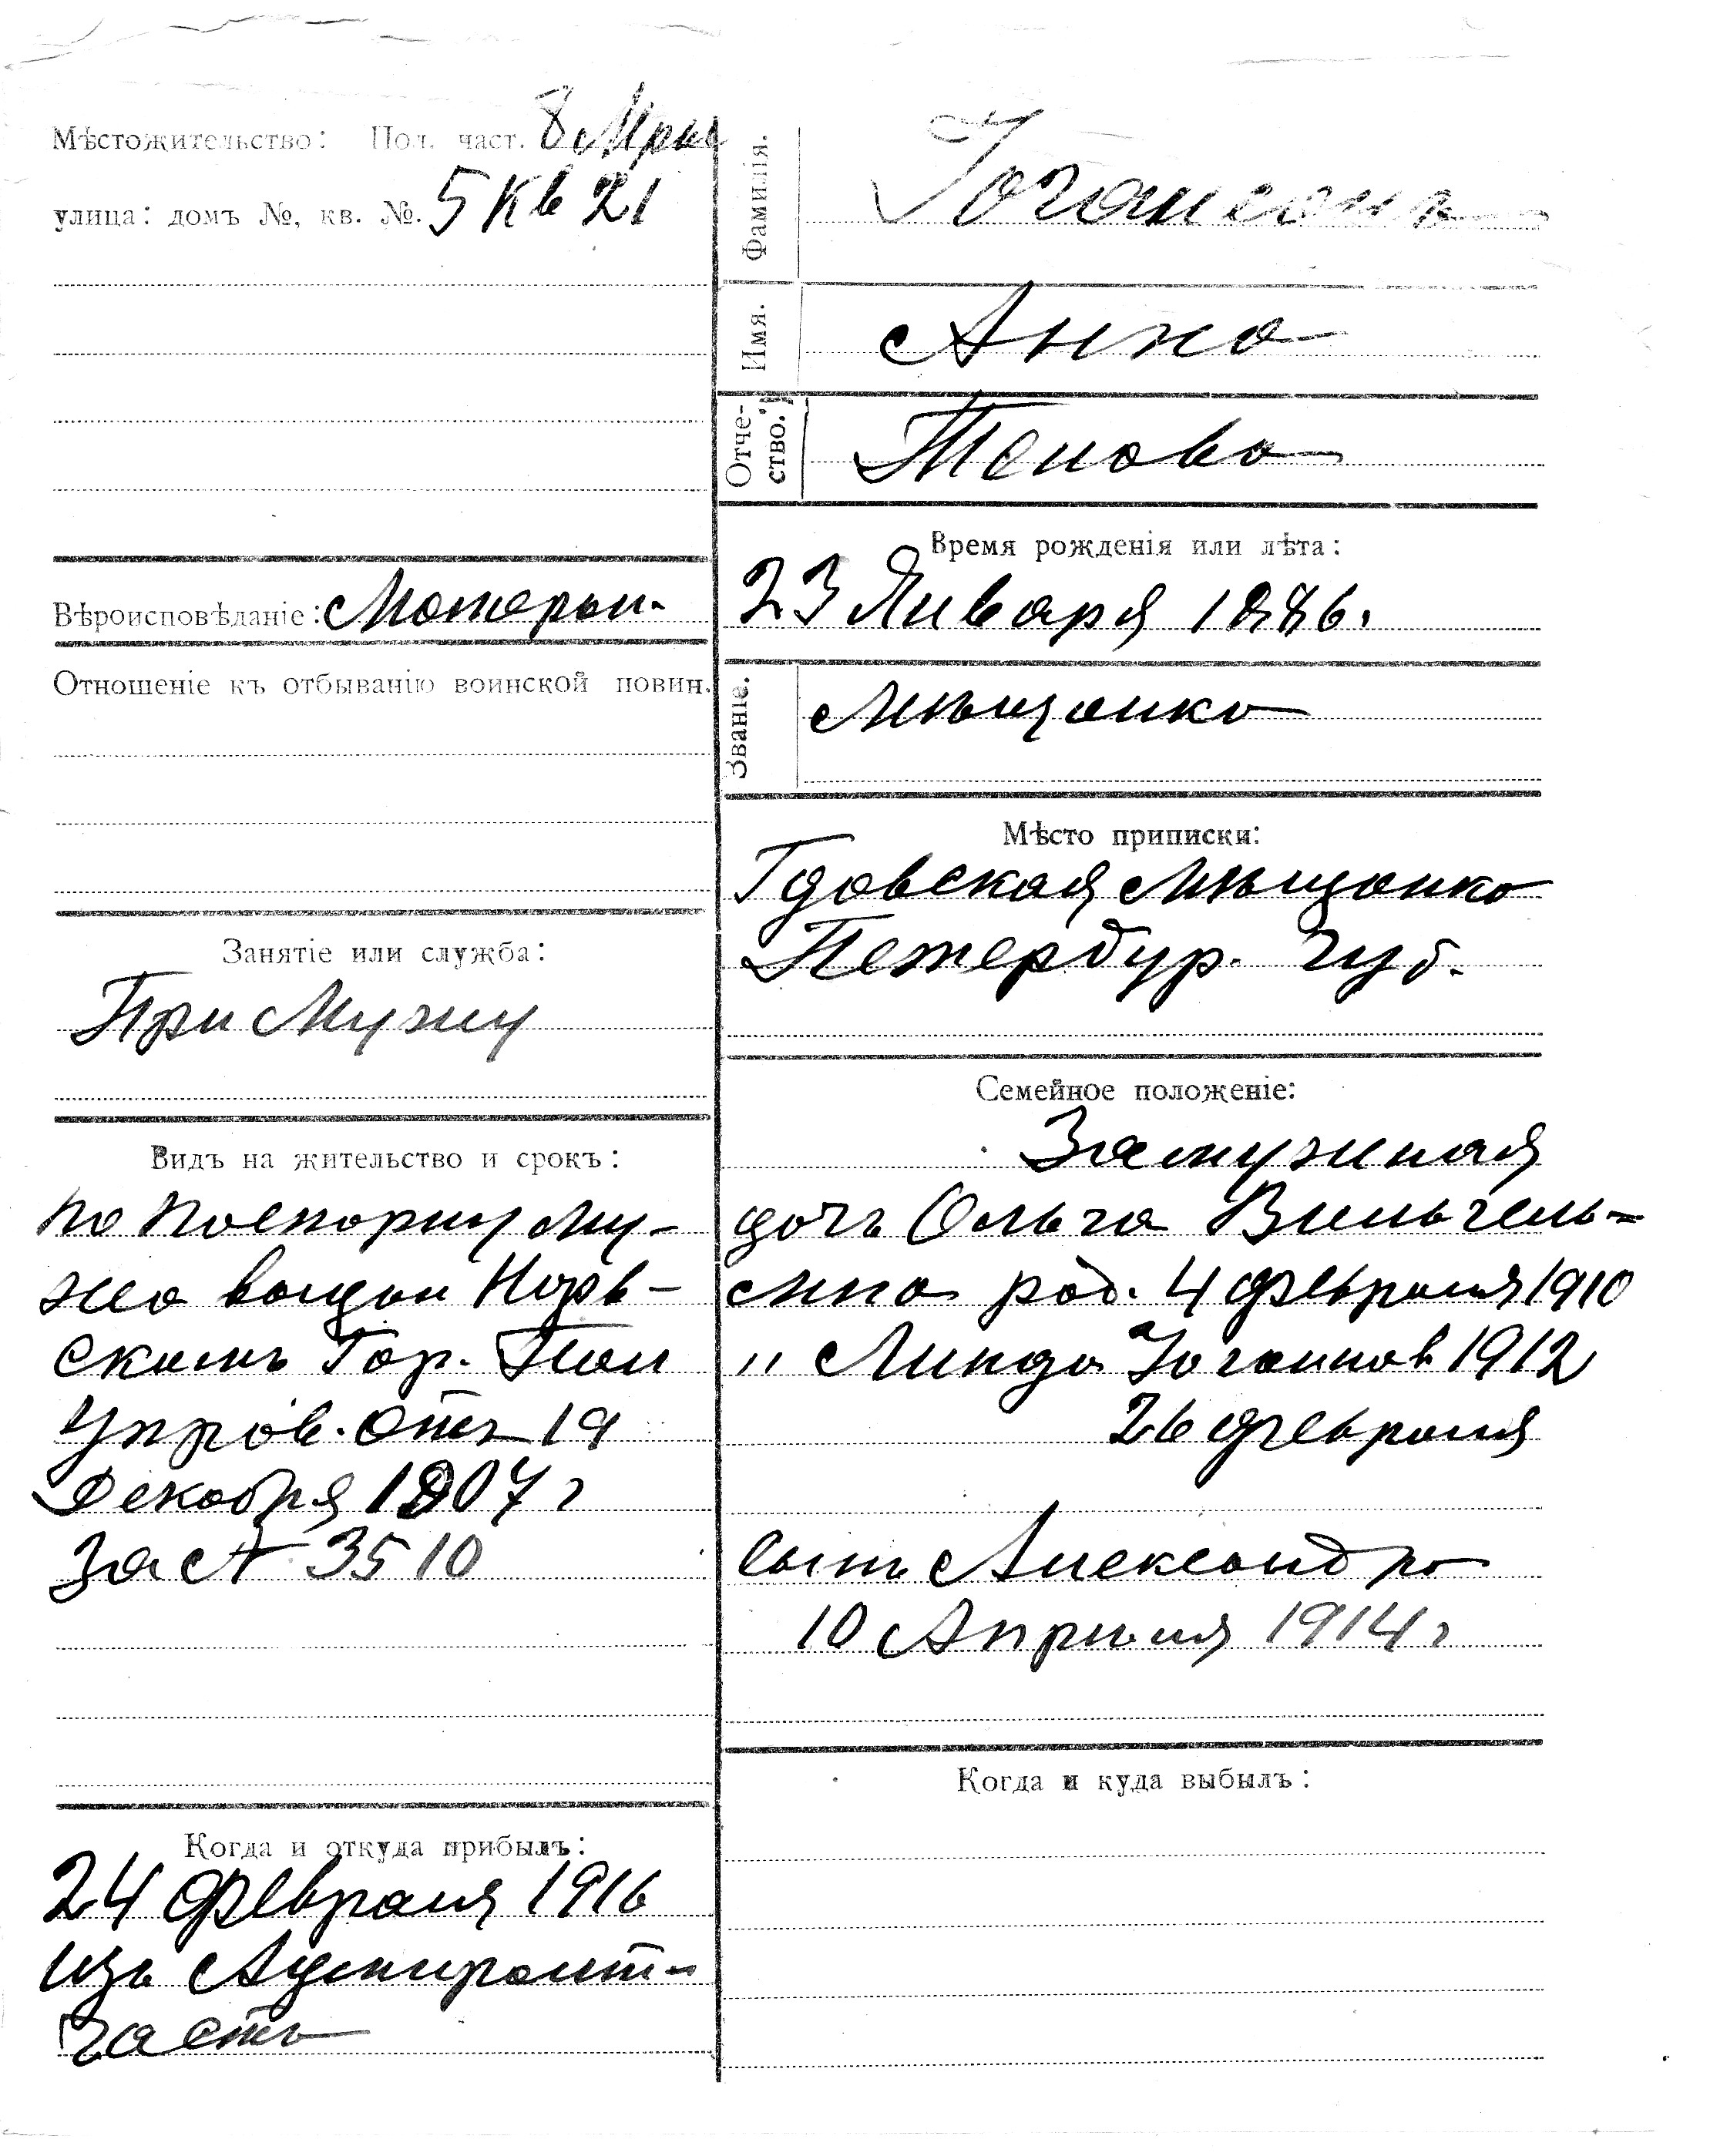 Мѣстожительство: Пол. част. 8
улица: домъ №, кв. №. 5 Кв 21
Вѣроисповѣданіе: Лютеран.
Отношеніе къ отбыванію воинской повин.
Занятіе или служба:
При Мужу
Видъ на жительство и срокъ:
По Паспорту му-
жа выдан Нарв-
скимъ Гор. Пол
Управ. Отъ 19
Декабря 1907 г
За № 3510
Когда и откуда прибылъ:
24 Февраля 1916
изъ Адмиралт-
часть
Фамилія.
Іогансонъ
Имя.
Анна
Отче-
ство.
Время рожденія или лѣта:
23 Января 1886.
Званіе.
Мѣщанка
Мѣсто приписки:
Гдовская Мѣщанка
Петербур. губ.
Семейное положеніе:
Замужная
дочь Ольга Вильгель-
мина род. 4 Февраля 1910
" Линда 1912
26 Февраля
Сынъ Александръ
10 Апрѣля 1914 г
Когда и куда выбылъ: